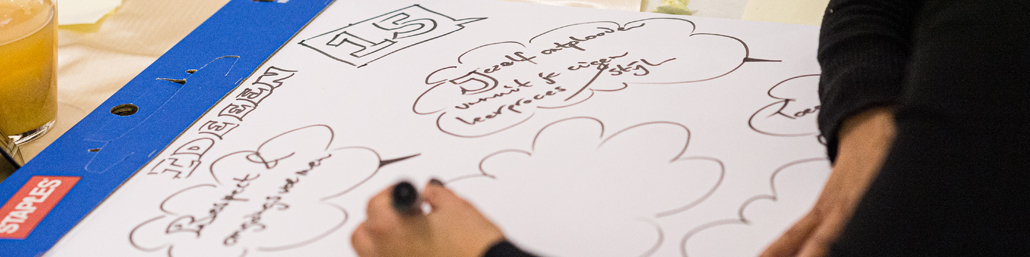 15
IDEEEN
Jezelf ontplooien
vanuit je eigen
leerproces / stijl
Respect &
omgangsvormen
STAPLES